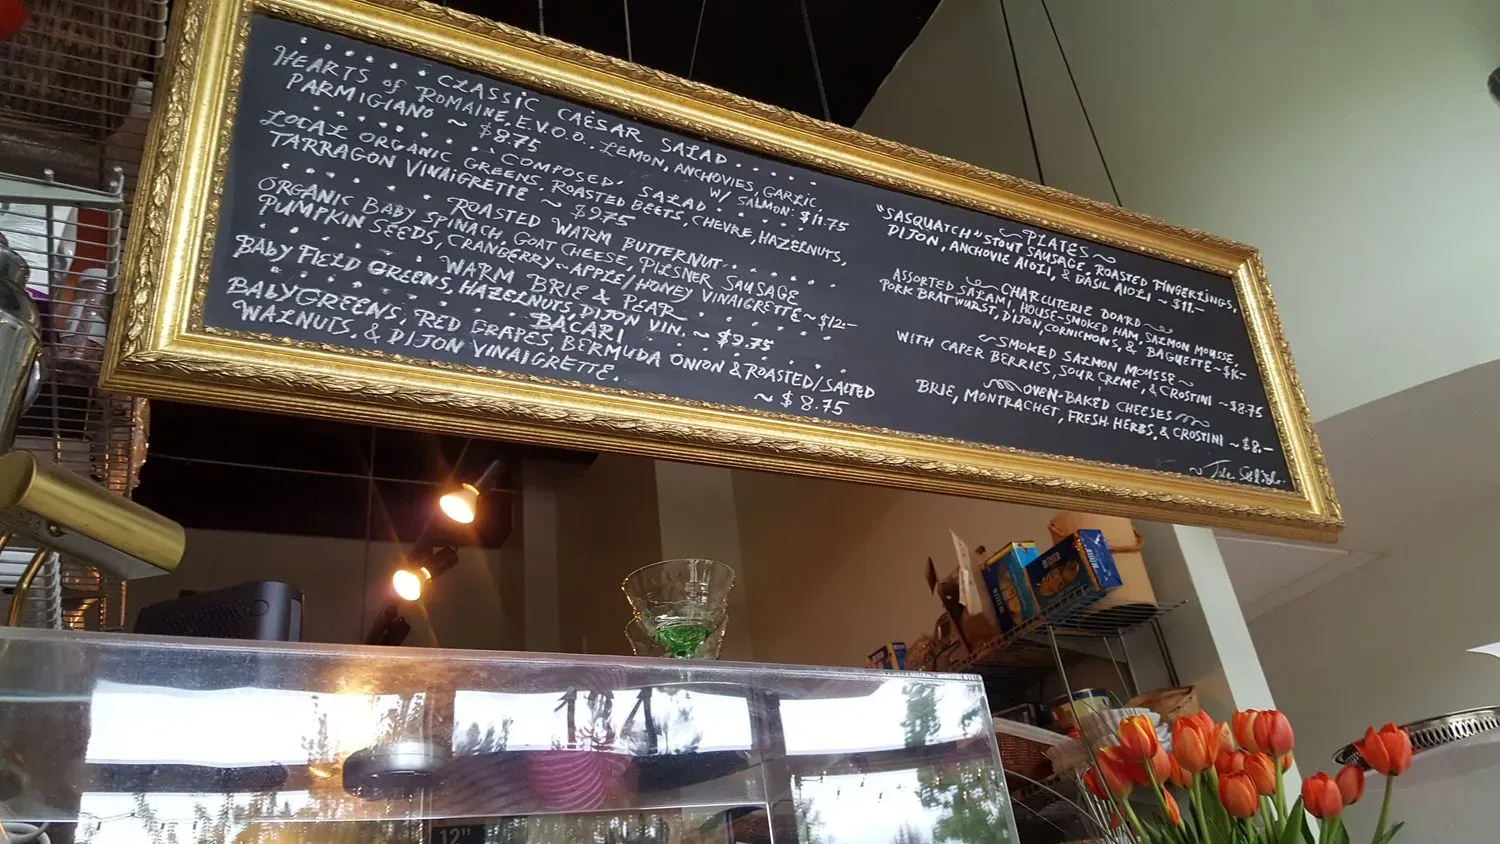 CLASSIC CAESAR SALAD
HEARTS of ROMAINE, E.V.O.O., LEMON, ANCHOVIES, GARLIC,
PARMIGIANO ~ $8.75 W/ SALMON: $11.75
COMPOSED SALAD
LOCAL ORGANIC GREENS, ROASTED BEETS, CHEVRE, HAZELNUTS,
TARRAGON VINAIGRETTE ~ $9.75
ROASTED WARM BUTTERNUT
ORGANIC BABY SPINACH, GOAT CHEESE, PILSNER SAUSAGE
PUMPKIN SEEDS, CRANBERRY-APPLE/HONEY VINAIGRETTE ~ $12-
WARM BRIE & PEAR
BABY FIELD GREENS, HAZELNUTS, DIJON VIN. ~ $9.75
BACARI
BABY GREENS, RED GRAPES, BERMUDA ONION & ROASTED/SALTED
WALNUTS, & DIJON VINAIGRETTE.
~ $8.75
~PLATES~
"SASQUATCH" STOUT SAUSAGE, ROASTED FINGERLINGS,
DIJON, ANCHOVIE AIOLI, & BASIL AIOLI ~ $11.-
CHARCUTERIE BOARD
ASSORTED SALAMI, HOUSE-SMOKED HAM, SALMON MOUSSE,
PORK BRATWURST, DIJON, CORNICHONS, & BAGUETTE ~
~SMOKED SALMON MOUSSE~
WITH CAPER BERRIES, SOUR CREME, & CROSTINI ~ $8.75
OVEN-BAKED CHEESES
BRIE, MONTRACHET, FRESH HERBS, & CROSTINI ~ $8.-
12"